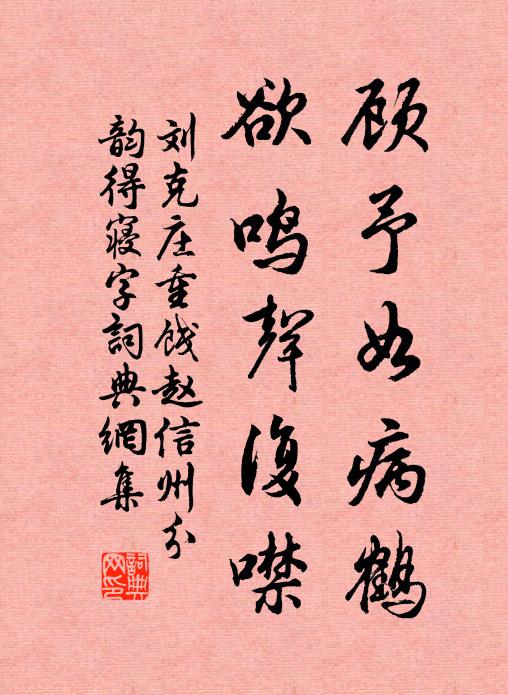 顾予如病鹤
欲鸣聲復噤
刘克庄重饯赵信州分
韵得寝字詞典網集
詞典
网印